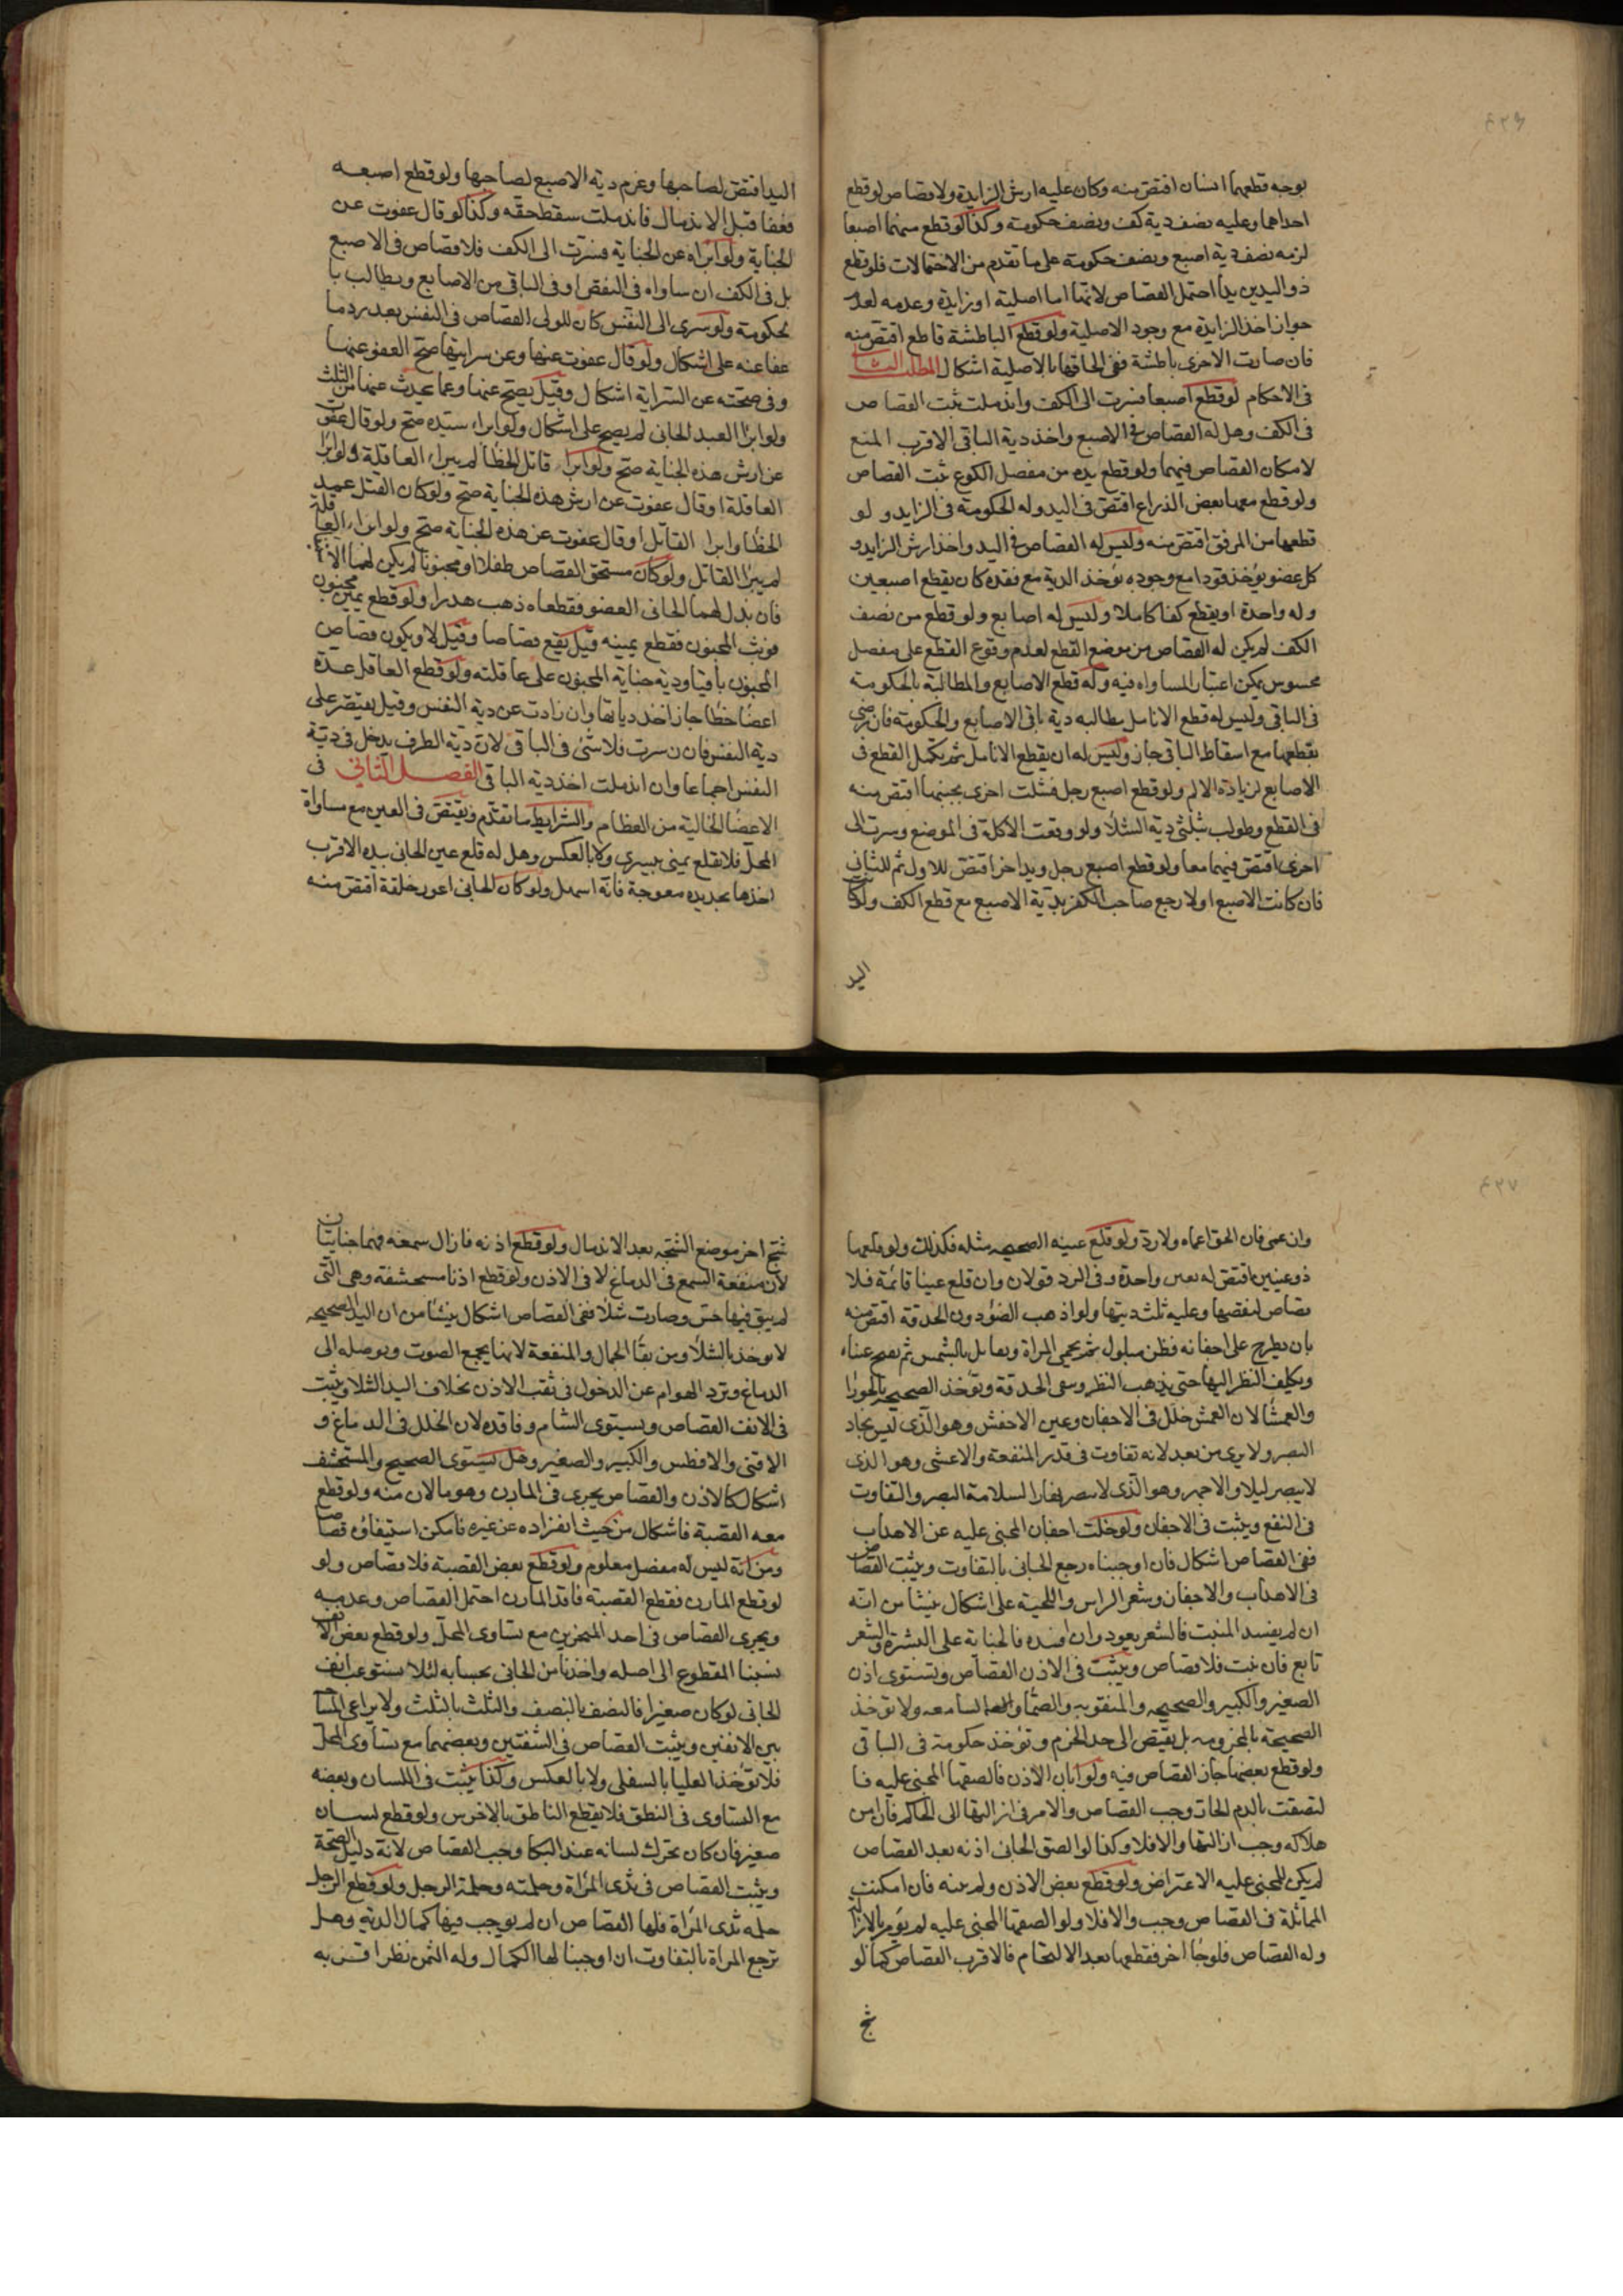 ٤٣٦
بوجه قطعهما انسان اقتص منه وكان عليه ارش الزايدة ولا قصاص لو قطع
احداهما وعليه نصف دية كف ونصف حكومة وكذا لو قطع منهما اصبعا
لزمه نصف دية اصبع ونصف حكومة على ما تقدم من الاحتمالات فلو قطع
ذو اليدين يدا احتمل القصاص لانها اما اصلية او زايدة وعدمه لعدم
جواز اخذ الزايدة مع وجود الاصلية ولو قطع الباطشة قاطع اقتص منه
فان صارت الاخرى باطشة ففى الحاقها بالاصلية اشكال المطلب الثالث
فى الاحكام لو قطع اصبعا فسرت الى الكف واندملت ثبت القصاص
فى الكف وهل له القصاص فى الاصبع واخذ دية الباقى الاقرب المنع
لامكان القصاص فيهما ولو قطع يده من مفصل الكوع ثبت القصاص
ولو قطع معها بعض الذراع اقتص فى اليد وله الحكومة فى الزايد ولو
قطعها من المرفق اقتص منه وليس له القصاص فى اليد واخذ ارش الزايد و
كل عضو يؤخذ قودا مع وجوده تؤخذ الدية مع فقده كان يقطع اصبعين
وله واحدة او يقطع كفا كاملا وليس له اصابع ولو قطع من نصف
الكف لم يكن له القصاص من موضع القطع لعدم وقوع القطع على مفصل
محسوس يمكن اعتبار المساواه فيه وله قطع الاصابع والمطالبة بالحكومة
فى الباقى وليس له قطع الانامل مطالبه دية باقى الاصابع والحكومة فان رضى
بقطعها مع اسقاط الباقى جاز وليس له ان يقطع الانامل ثم يكمل القطع فى
الاصابع لزيادة الالم ولو قطع اصبع رجل فشلت اخرى بجنبها اقتص منه
فى القطع وطولب بثلثى دية الشلا ولو وقعت الاكلة فى الموضع وسرت الى
اخرى اقتص فيهما معا ولو قطع اصبع رجل ويد اخر اقتص للاول ثم للثانى
فان كانت الاصبع اولا رجع صاحب الكف بدية الاصبع مع قطع الكف ولو كانت
اليد
اليد اقتص لصاحبها وغرم دية الاصبع لصاحبها ولو قطع اصبعه
فعفا قبل الاندمال فاندملت سقط حقه وكذا لو قال عفوت عن
الجناية ولو ابراه عن الجناية فسرت الى الكف فلا قصاص فى الاصبع
بل فى الكف ان ساواه فى النقص او فى الباقى من الاصابع ويطالب با
لحكومة ولو سرى الى النفس كان للولى القصاص فى النفس بعد رد ما
عفا عنه على اشكال ولو قال عفوت عنها وعن سرايتها صح العفو عنها
وفى صحته عن السراية اشكال وقيل يصح عنها وعما يحدث عنها من الثلث
ولو ابرا العبد الجانى لم يصح على اشكال ولو ابراء سيده صح ولو قال عفوت
عن ارش هذه الجناية صح ولو ابرا قاتل الخطأ لم يبراء العاقلة ولو ابرا
العاقلة او قال عفوت عن ارش هذه الجناية صح ولو كان القتل عمد
الخطا وابرا القاتل او قال عفوت عن هذه الجناية صح ولو ابراء العاقلة
لم يبرا القاتل ولو كان مستحق القصاص طفلا او مجنونا لم يكن لهما الاستيفا
فان بذل لهما الجانى العضو فقطعاه ذهب هدرا ولو قطع يمين مجنون
فوثب المجنون فقطع يمينه قيل يقع قصاصا وقيل لا ويكون قصاص
المجنون باقيا ودية جناية المجنون على عاقلته ولو قطع العاقل عدة
اعضا خطا جاز اخذ دياتها وان زادت عن دية النفس وقيل يقتصر على
دية النفس فان سرت فلا شئ فى الباقى لان دية الطرف يدخل فى دية
النفس اجماعا وان اندملت اخذ دية الباقى الفصل الثانى فى
الاعضا الخالية من العظام والشرايط ما تقدم ويقتص فى العين مع مساواة
المحل فلا تقلع يمنى بيسرى ولا بالعكس وهل له قلع عين الجانى بيده الاقرب
اخذها بحديده معوجة فانه اسهل ولو كان الجانى اعور خلقة اقتص منه
٤٣٧
وان عمى فان الحق اعماه ولا رد ولو قلع عينه الصحيحه مثله فكذلك ولو قلعها
ذو عينين اقتص له بعين واحدة وفى الرد قولان وان قلع عينا قائمة فلا
قصاص لنقصها وعليه ثلث ديتها ولو اذهب الضؤ دون الحدقة اقتص منه
بان يطرح على اجفانه قطن مبلول ثم يحمى المراة ويقابل بالشمس ثم يفتح عيناه
ويكلف النظر اليها حتى يذهب النظر وتبقى الحدقة وتؤخذ الصحيحة بالحورا
والعمشا لان العمش خلل فى الاجفان وعين الاخفش وهو الذى ليس بحاد
البصر ولا يرى من بعد لانه تفاوت فى قدر المنفعة والاعشى وهو الذى
لا يبصر ليلا والاجهر وهو الذى لا يبصر نهارا لسلامة البصر والتفاوت
فى النفع ويثبت فى الاجفان ولو خلت اجفان المجنى عليه عن الاهداب
ففى القصاص اشكال فان اوجبناه رجع الجانى بالتفاوت ويثبت القصاص
فى الاهداب والاجفان وشعر الراس واللحية على اشكال ينشا من انه
ان لم يفسد المنبت فالشعر يعود وان افسده فالجناية على البشرة والشعر
تابع فان نبت فلا قصاص ويثبت فى الاذن القصاص وتستوى اذن
الصغير والكبير والصحيحه والمثقوبه والصما والسامعه ولا تؤخذ
الصحيحة بالمخرومه بل يقتص الى حد الخرم وتؤخذ حكومة فى الباقى
ولو قطع بعضها جاز القصاص فيه ولو ابان الاذن فالصقها المجنى عليه فا
لتصقت بالدم الحار وجب القصاص والامر فى ازالتها الى الحاكم فان امن
هلاكه وجب ازالتها والا فلا وكذا لو الصق الجانى اذنه بعد القصاص
لم يكن للمجنى عليه الاعتراض ولو قطع بعض الاذن ولم يبنه فان امكنت
المماثلة فى القصاص وجب والا فلا ولو الصقها المجنى عليه لم يؤمر بالازالة
وله القصاص فلو جا اخر فقطعها بعد الالتحام فالاقرب القصاص كما لو
شج
شج اخر موضع الشجه بعد الاندمال ولو قطع اذنه فازال سمعه فهما جنايتان
لان منفعة السمع فى الدماغ لا فى الاذن ولو قطع اذنا مستحشفة وهى التى
لم يبق فيها حس وصارت شلا ففى القصاص اشكال ينشا من ان اليد الصحيحه
لا يوخذ بالشلا ومن بقا الجمال والمنفعة لانها يجمع الصوت ويوصله الى
الدماغ وترد الهوام عن الدخول فى ثقب الاذن بخلاف اليد الشلا ويثبت
فى الانف القصاص ويستوى الشام وفاقده لان الخلل فى الدماغ و
الاقنى والافطس والكبير والصغير وهل يستوى الصحيح والمستحشف
اشكال كالاذن والقصاص يجرى فى المارن وهو ما لان منه ولو قطع
معه القصبة فاشكال من حيث انفراده عن غيره فامكن استيفاؤه قصاصا
ومن انه ليس له مفصل معلوم ولو قطع بعض القصبة فلا قصاص ولو
لو قطع المارن فقطع القصبة فاقد المارن احتمل القصاص وعدمه
ويجرى القصاص فى احد المنخرين مع تساوى المحل ولو قطع بعض الانف
نسبنا المقطوع الى اصله واخذنا من الجانى بحسابه لئلا يستوعب انف
الجانى لو كان صغيرا فالنصف بالنصف والثلث بالثلث ولا يراعى المساواة
بين الانفين ويثبت القصاص فى الشفتين وبعضهما مع تساوى المحل
فلا تؤخذ العليا بالسفلى ولا بالعكس وكذا يثبت فى اللسان وبعضه
مع التساوى فى النطق فلا يقطع الناطق بالاخرس ولو قطع لسان
صغير فان كان تحرك لسانه عند البكا وجب القصاص لانه دليل الصحة
ويثبت القصاص فى ثدى المراة وحلمته وحلمة الرجل ولو قطع الرجل
حلمه ثدى المراة فلها القصاص ان لم يوجب فيها كمال الدية وهل
ترجع المراة بالتفاوت ان اوجبنا لها الكمال وله الثمن نظر اقربه